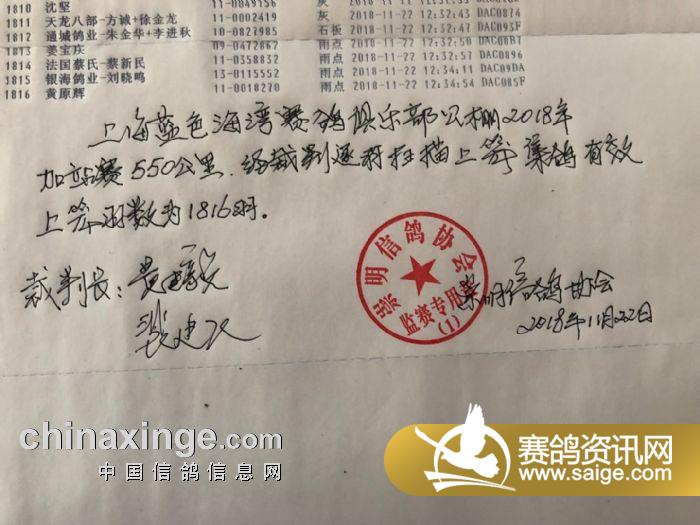 1810 沈坚 11-0049156 灰 2018-11-22
1811 天龙八部-方诚+徐金龙 11-0002419 灰 2018-11-22 12:32:43 DAC0874
1812 通城鸽业-朱金华+李进秋 10-0827985 石板 2018-11-22 12:32:44 DAC093F
1813 姜宝庆 09-0472862 雨点 2018-11-22 12:32:50 DAC0B67
1814 法国蔡氏-蔡新民 11-0358832 雨点 2018-11-22 12:32:57 DAC0896
1815 银海鸽业-刘晓鸣 13-0115552 雨点 2018-11-22 12:34:11 DAC09DA
1816 黄原辉 11-0018270 雨点 2018-11-22 12:32:54 DAC085F
上海蓝色海湾赛鸽俱乐部公棚2018年
加站赛550公里.经裁判逐羽扫描上笼集鸽有效
上笼羽数为1816羽.
裁判长:
崇明信鸽协会
监赛专用章
(1)
崇明信鸽协会
2018年11月22日
chinaxinge.com
中国信鸽信息网
赛鸽资讯网
www.saige.com